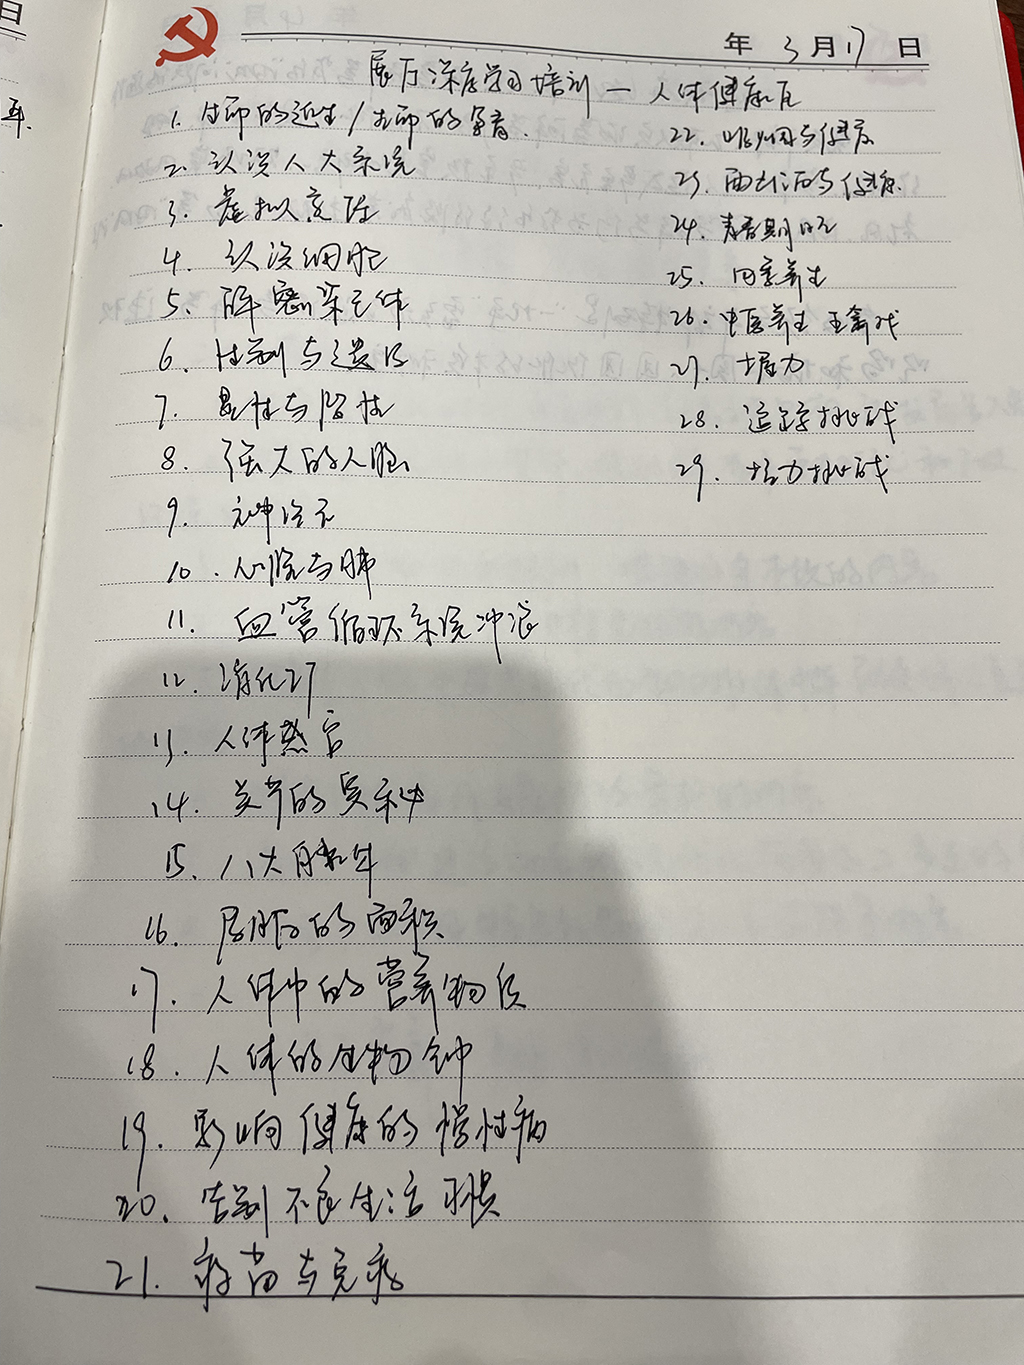 日
年
年 3月17日
展厅深度学习培训—人体健康厅
1. 生命的诞生/生命的孕育.
2. 认识八大系统
3. 虚拟变脸
4. 认识细胞
5. 解密染色体
6. 性别与遗传
7. 显性与隐性
8. 强大的人脑
9. 神经元
10. 心脏与肺
11. 血管循环系统冲浪
12. 消化厅
13. 人体感官
14. 关节的奥秘
15. 八大腺体
16. 皮肤的面积
17. 人体中的营养物质
18. 人体的生物钟
19. 影响健康的慢性病
20. 告别不良生活习惯
21. 疫苗与免疫
22. 吸烟与健康
23. 喝酒与健康
24. 青春期
25. 四季养生
26. 中医养生 五禽戏
27. 握力
28. 追踪挑战
29. 挑战